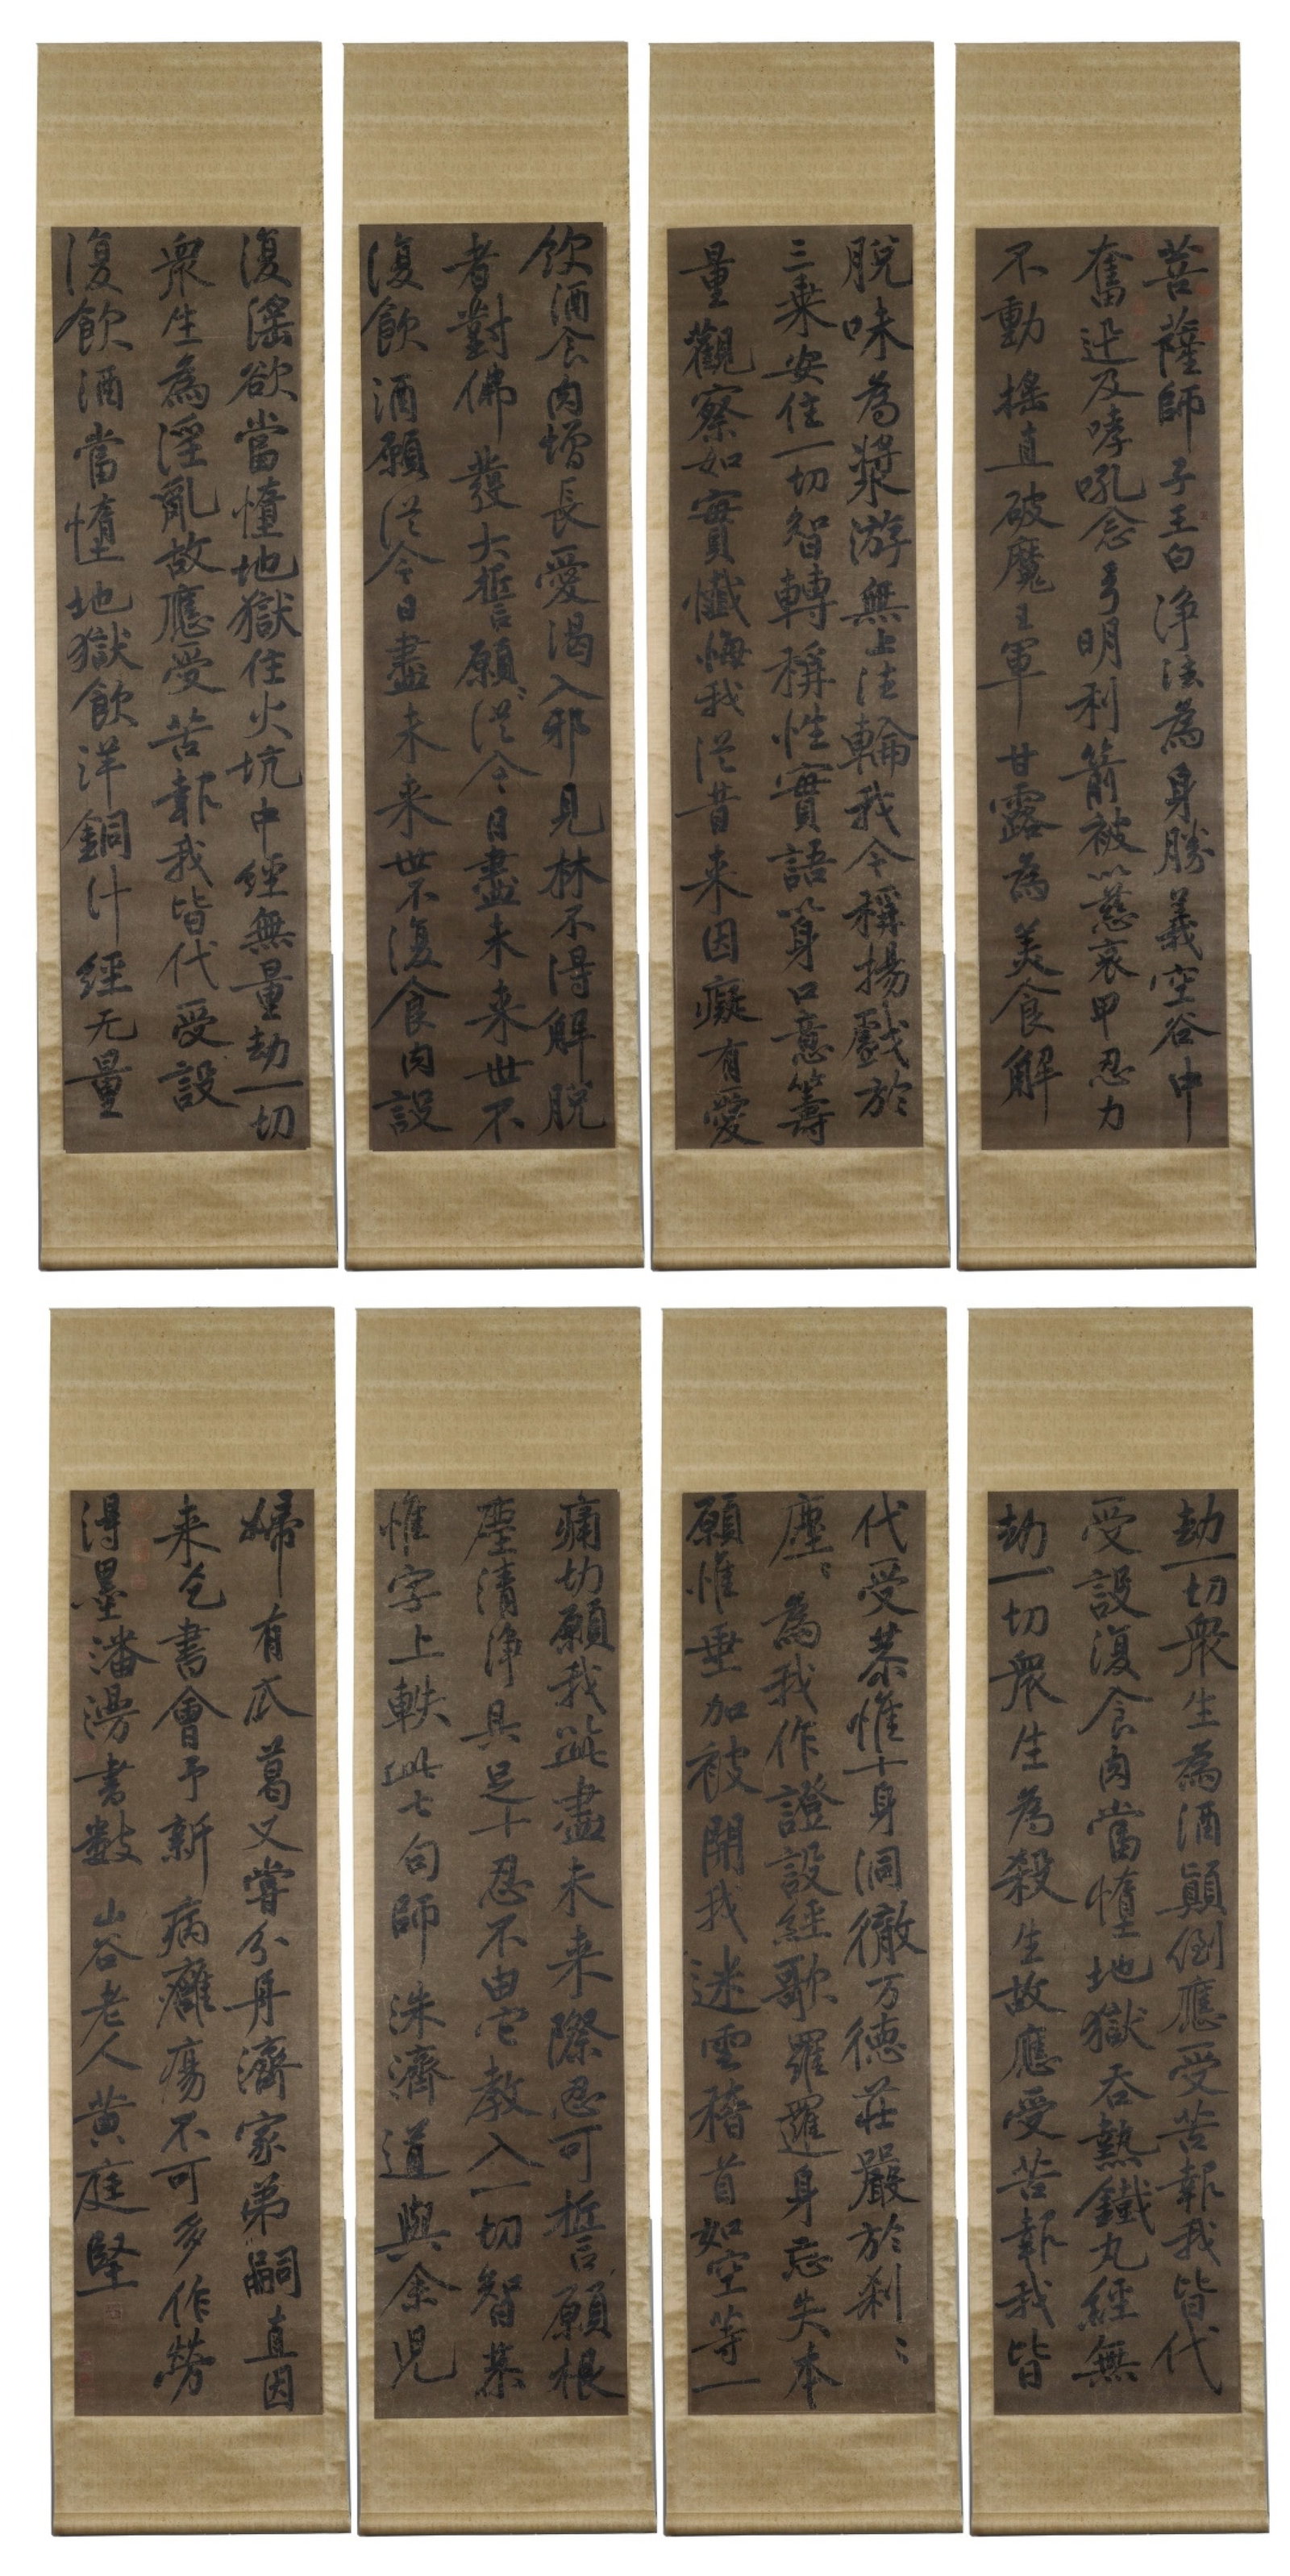 菩薩師子王白淨法為身勝義空谷中
奮迅及哮吼念弓明利箭被以慈哀甲忍力
不動搖直破魔王軍甘露為美食解
脫味為漿游無上法輪我今稱揚戲於
三乘安住一切智轉稱性實語以身口意籌
量觀察如實懺悔我從昔來因癡有愛
飲酒食肉增長愛渴入邪見林不得解脫
者對佛發大誓願〻從今日盡未來世不
復飲酒願從今日盡未来世不復食肉設
復淫欲當墮地獄住火坑中經無量劫一切
衆生為淫亂故應受苦報我皆代受設
復飲酒當墮地獄飲洋銅汁經无量
劫一切衆生為酒顛倒應受苦報我皆代
受設復食肉當墮地獄吞熱鐵丸經無
劫一切衆生為殺生故應受苦報我皆
代受恭惟十身洞徹万德莊嚴於剎〻
塵〻為我作證設經歌羅邏身忘失本
願惟垂加被開我迷雲稽首如空等一
痛切願我此盡未来際忍可誓願根
塵清淨具足十忍不由它教入一切智恭
惟字上軼此七句師洙濟道與余兒
婦有瓜葛又嘗分舟濟家弟嗣直因
来乞書會予新病癰瘍不可多作勞
得墨瀋漫書數 山谷老人黃庭堅